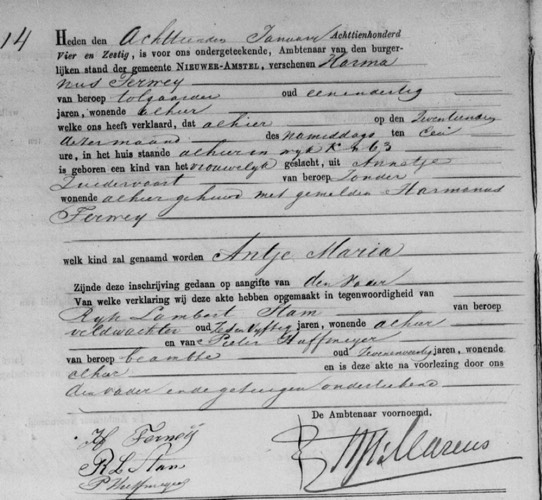 14
Heden den Achttienden Januari Achttienhonderd
Vier en Zestig, is voor ons ondergeteekende, Ambtenaar van den burger-
lijken stand der gemeente NIEUWER-AMSTEL, verschenen Harma
nus Terwey
van beroep tolgaarder oud eenendertig
jaren, wonende alhier
welke ons heeft verklaard, dat alhier op den Zeventienden
dezer maand des namiddags ten Een
ure, in het huis staande alhier in wyk K 463
is geboren een kind van het vrouwelyk geslacht, uit Annetje
Zuidervaart van beroep Zonder
wonende alhier gehuwd met gemelden Harmanus
Terwey
welk kind zal genaamd worden Antje Maria
Zijnde deze inschrijving gedaan op aangifte van den Vader
Van welke verklaring wij deze akte hebben opgemaakt in tegenwoordigheid van
Ryk Lambert Stam van beroep
veldwachter oud jaren, wonende alhier
en van Pieter Huffmeyer
van beroep beambte oud Zevenenveertig jaren, wonende
alhier en is deze akte na voorlezing door ons
den vader en de getuigen onderteekend
De Ambtenaar voornoemd.
H Terweij
R L Stam
P Huffmeyer